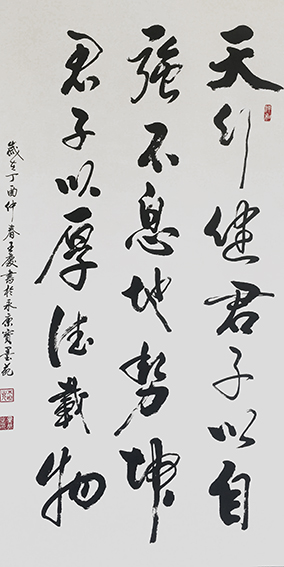 天行健君子以自
强不息地势坤
君子以厚德载物
岁在丁酉仲春王庆书于永康宝墨苑